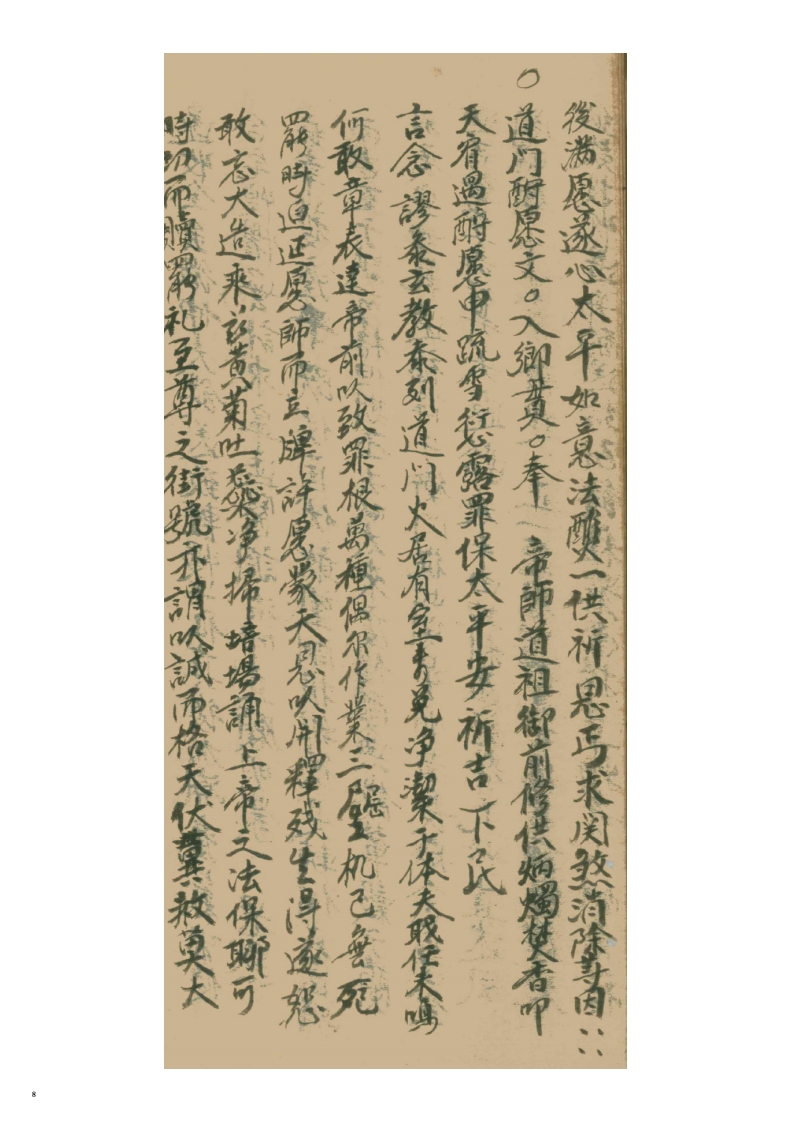 後满愿遂心太平如意法酧一供祈恩丐求関煞消除等因：：
○道门酧愿文○入鄉貫○奉　帝師道祖御前修供炳燭焚香叩
天宥過酧愿申疏雪衍愆露罪保太平安祈吉下民
言念謬叅玄教泰列道门火居有室未免净潔于体夫职任未鳴
何敢章表達帝前以致罪根萬種偶尔作業三机已無死
罷時迫延愿師而立牌許愿蒙天恩以開釋残生得遂恕
敢忘大造乘兹黄菊吐蘂净掃培場誦上帝之法保聊可
時切而贖罷礼至尊之街號亦謂以誠而格天伏冀赦莫大
8